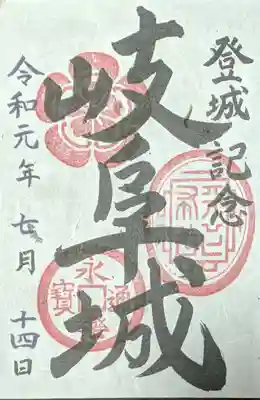 登城記念
岐阜城
令和元年 七月 十四日
永
通
寳